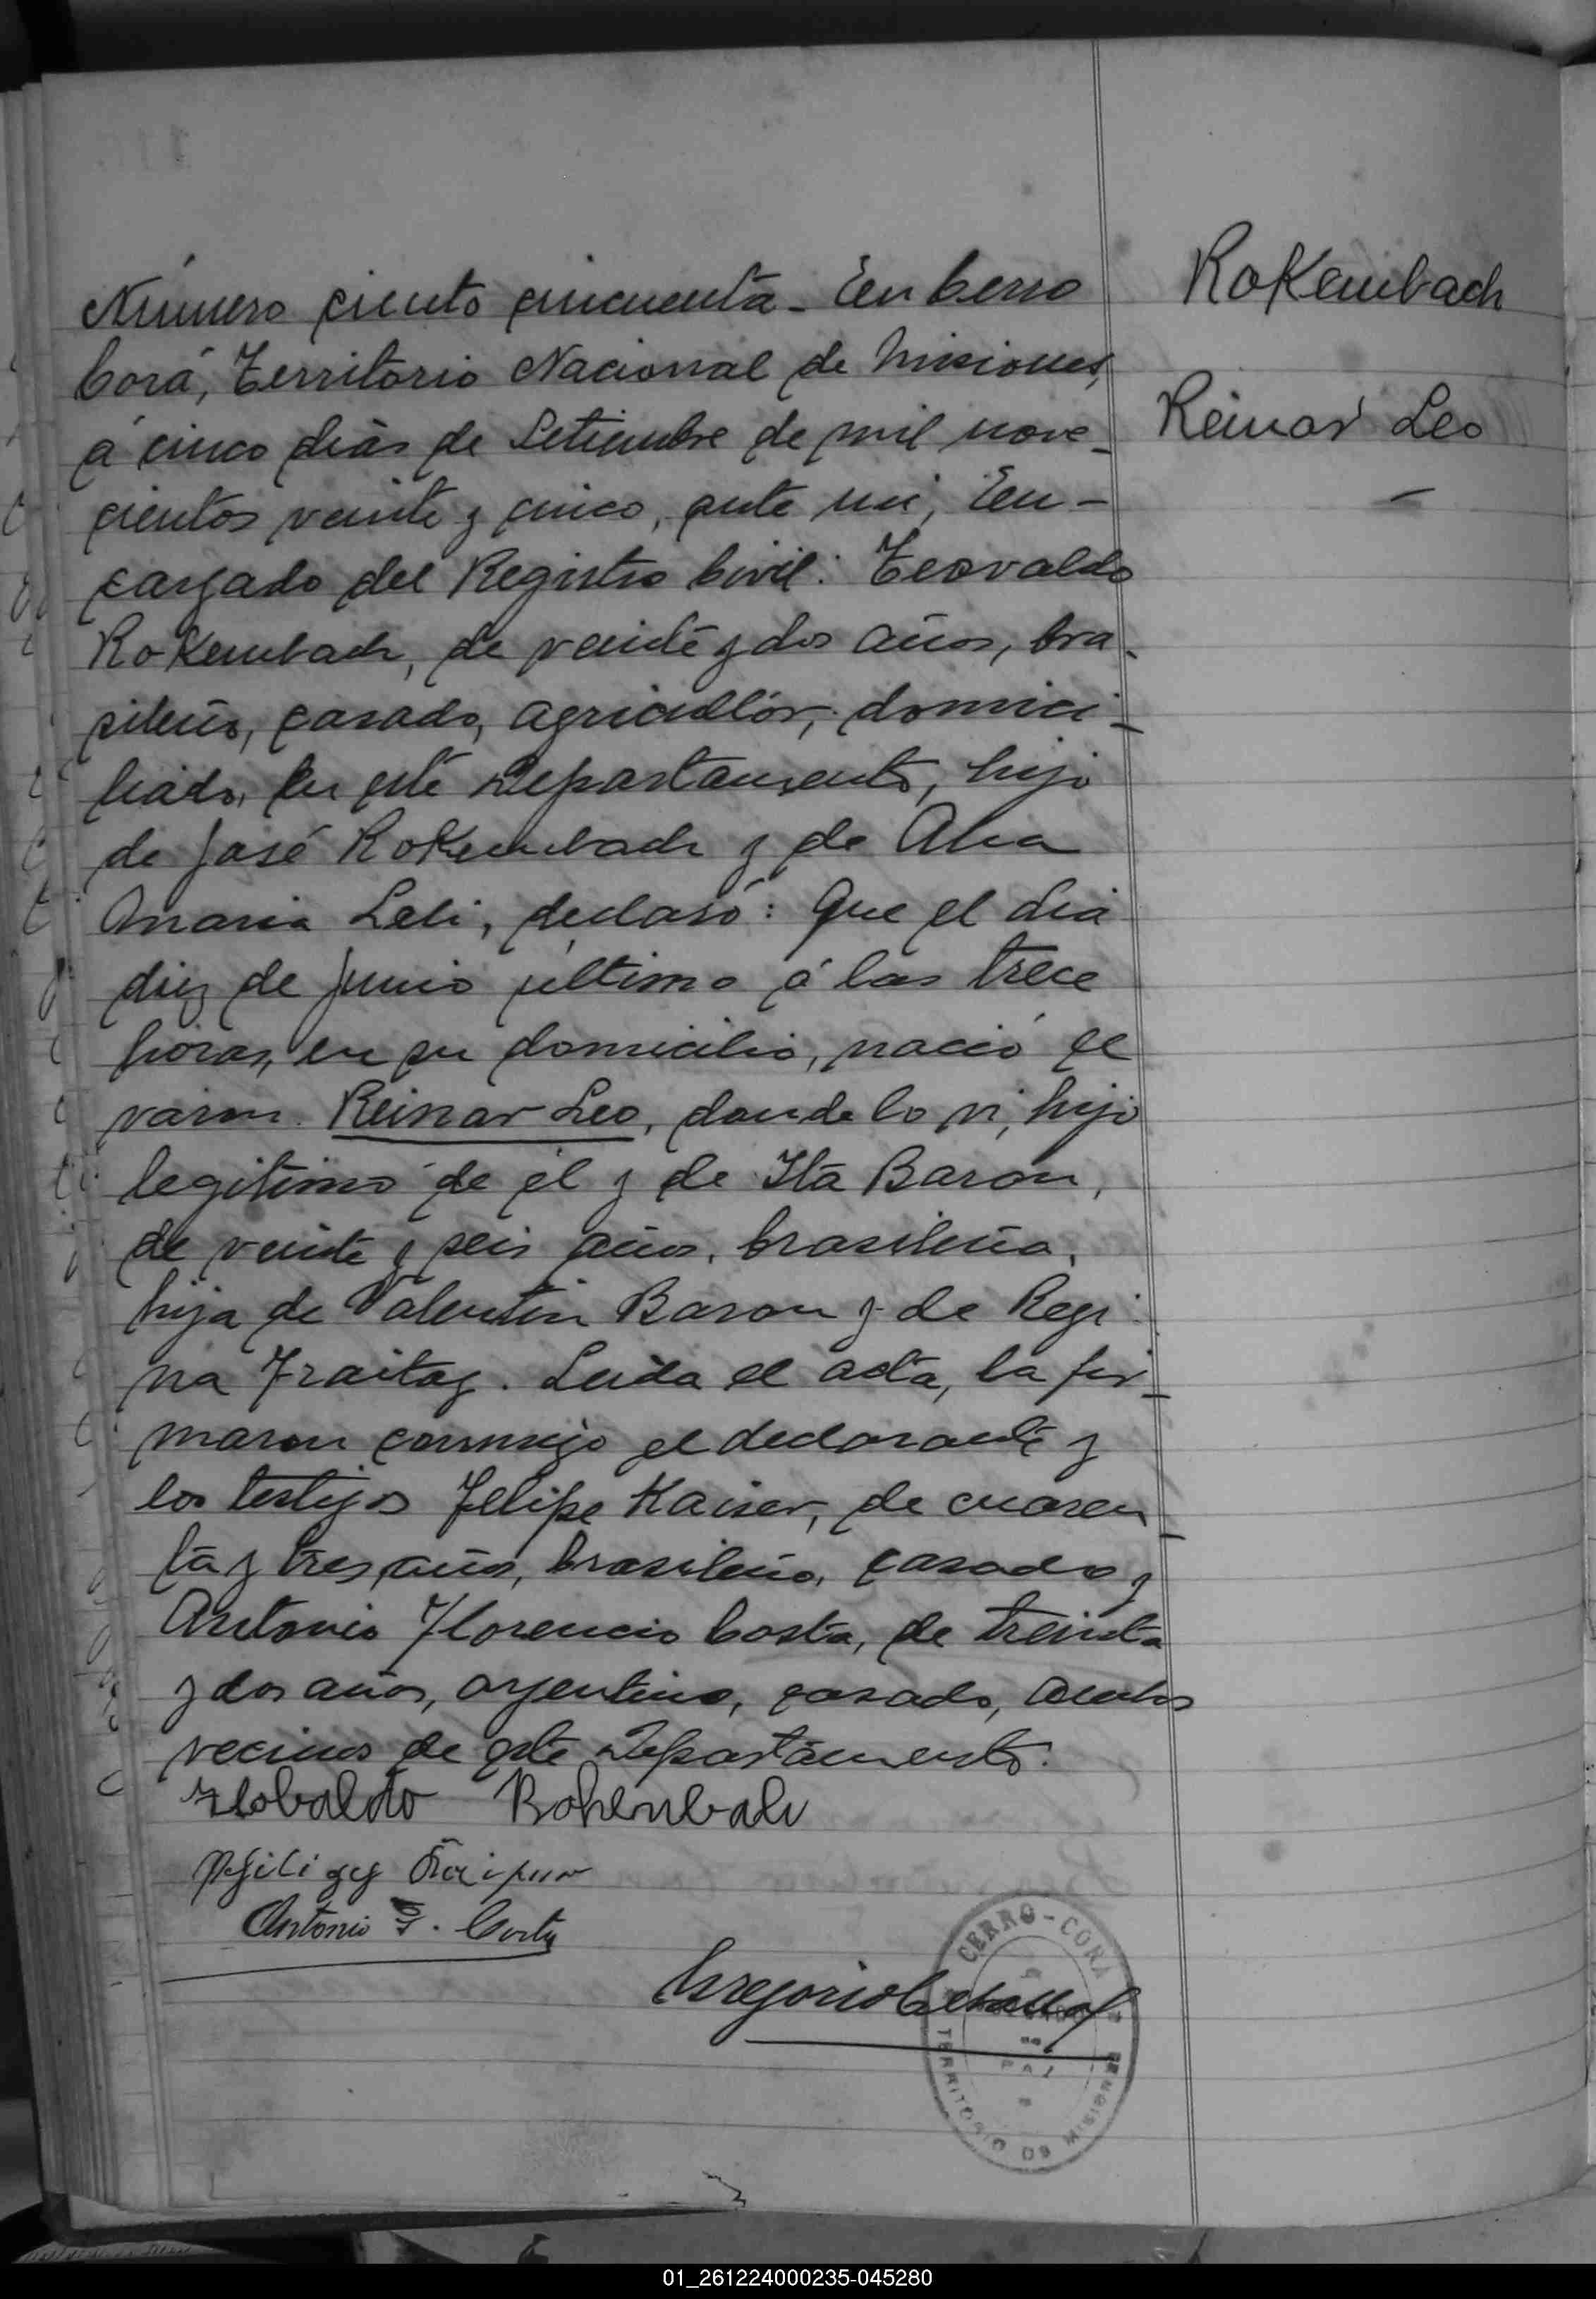 Rokembach
Reinar Leo
Número ciento cincuenta - En Cerro
Corá, Territorio Nacional de Misiones,
á cinco dias de Setiembre de mil nove-
cientos veinte y cinco, ante mi, En-
cargado del Registro Civil: Teovaldo
Rokembach, de veinte y dos años, bra-
sileño, casado, agricultor, domici-
liado, en este Departamento, hijo
de José Rokembach y de Ana
Maria Leli, declaró: Que el dia
diez de Junio último á las trece
horas, en su domicilio, nació el
varon Reinar Leo, donde lo vi, hijo
legitimo de él y de Ita Baron,
de veinte y seis años, brasileña,
hija de Valentin Baron y de Regi
na Fraitag. Leida el acta, la fir-
maron conmigo el declarante y
los testigos Felipe Kaiser, de cuaren-
ta y tres años, brasileño, casado y
Antonio Florencio Costa, de treinta
y dos años, argentino, casado, ambos
vecinos de este Departamento.
Antonio F. Costa
Gregorio
CERRO-CORÁ
TERRITORIO DE MISIONES
01_261224000235-045280